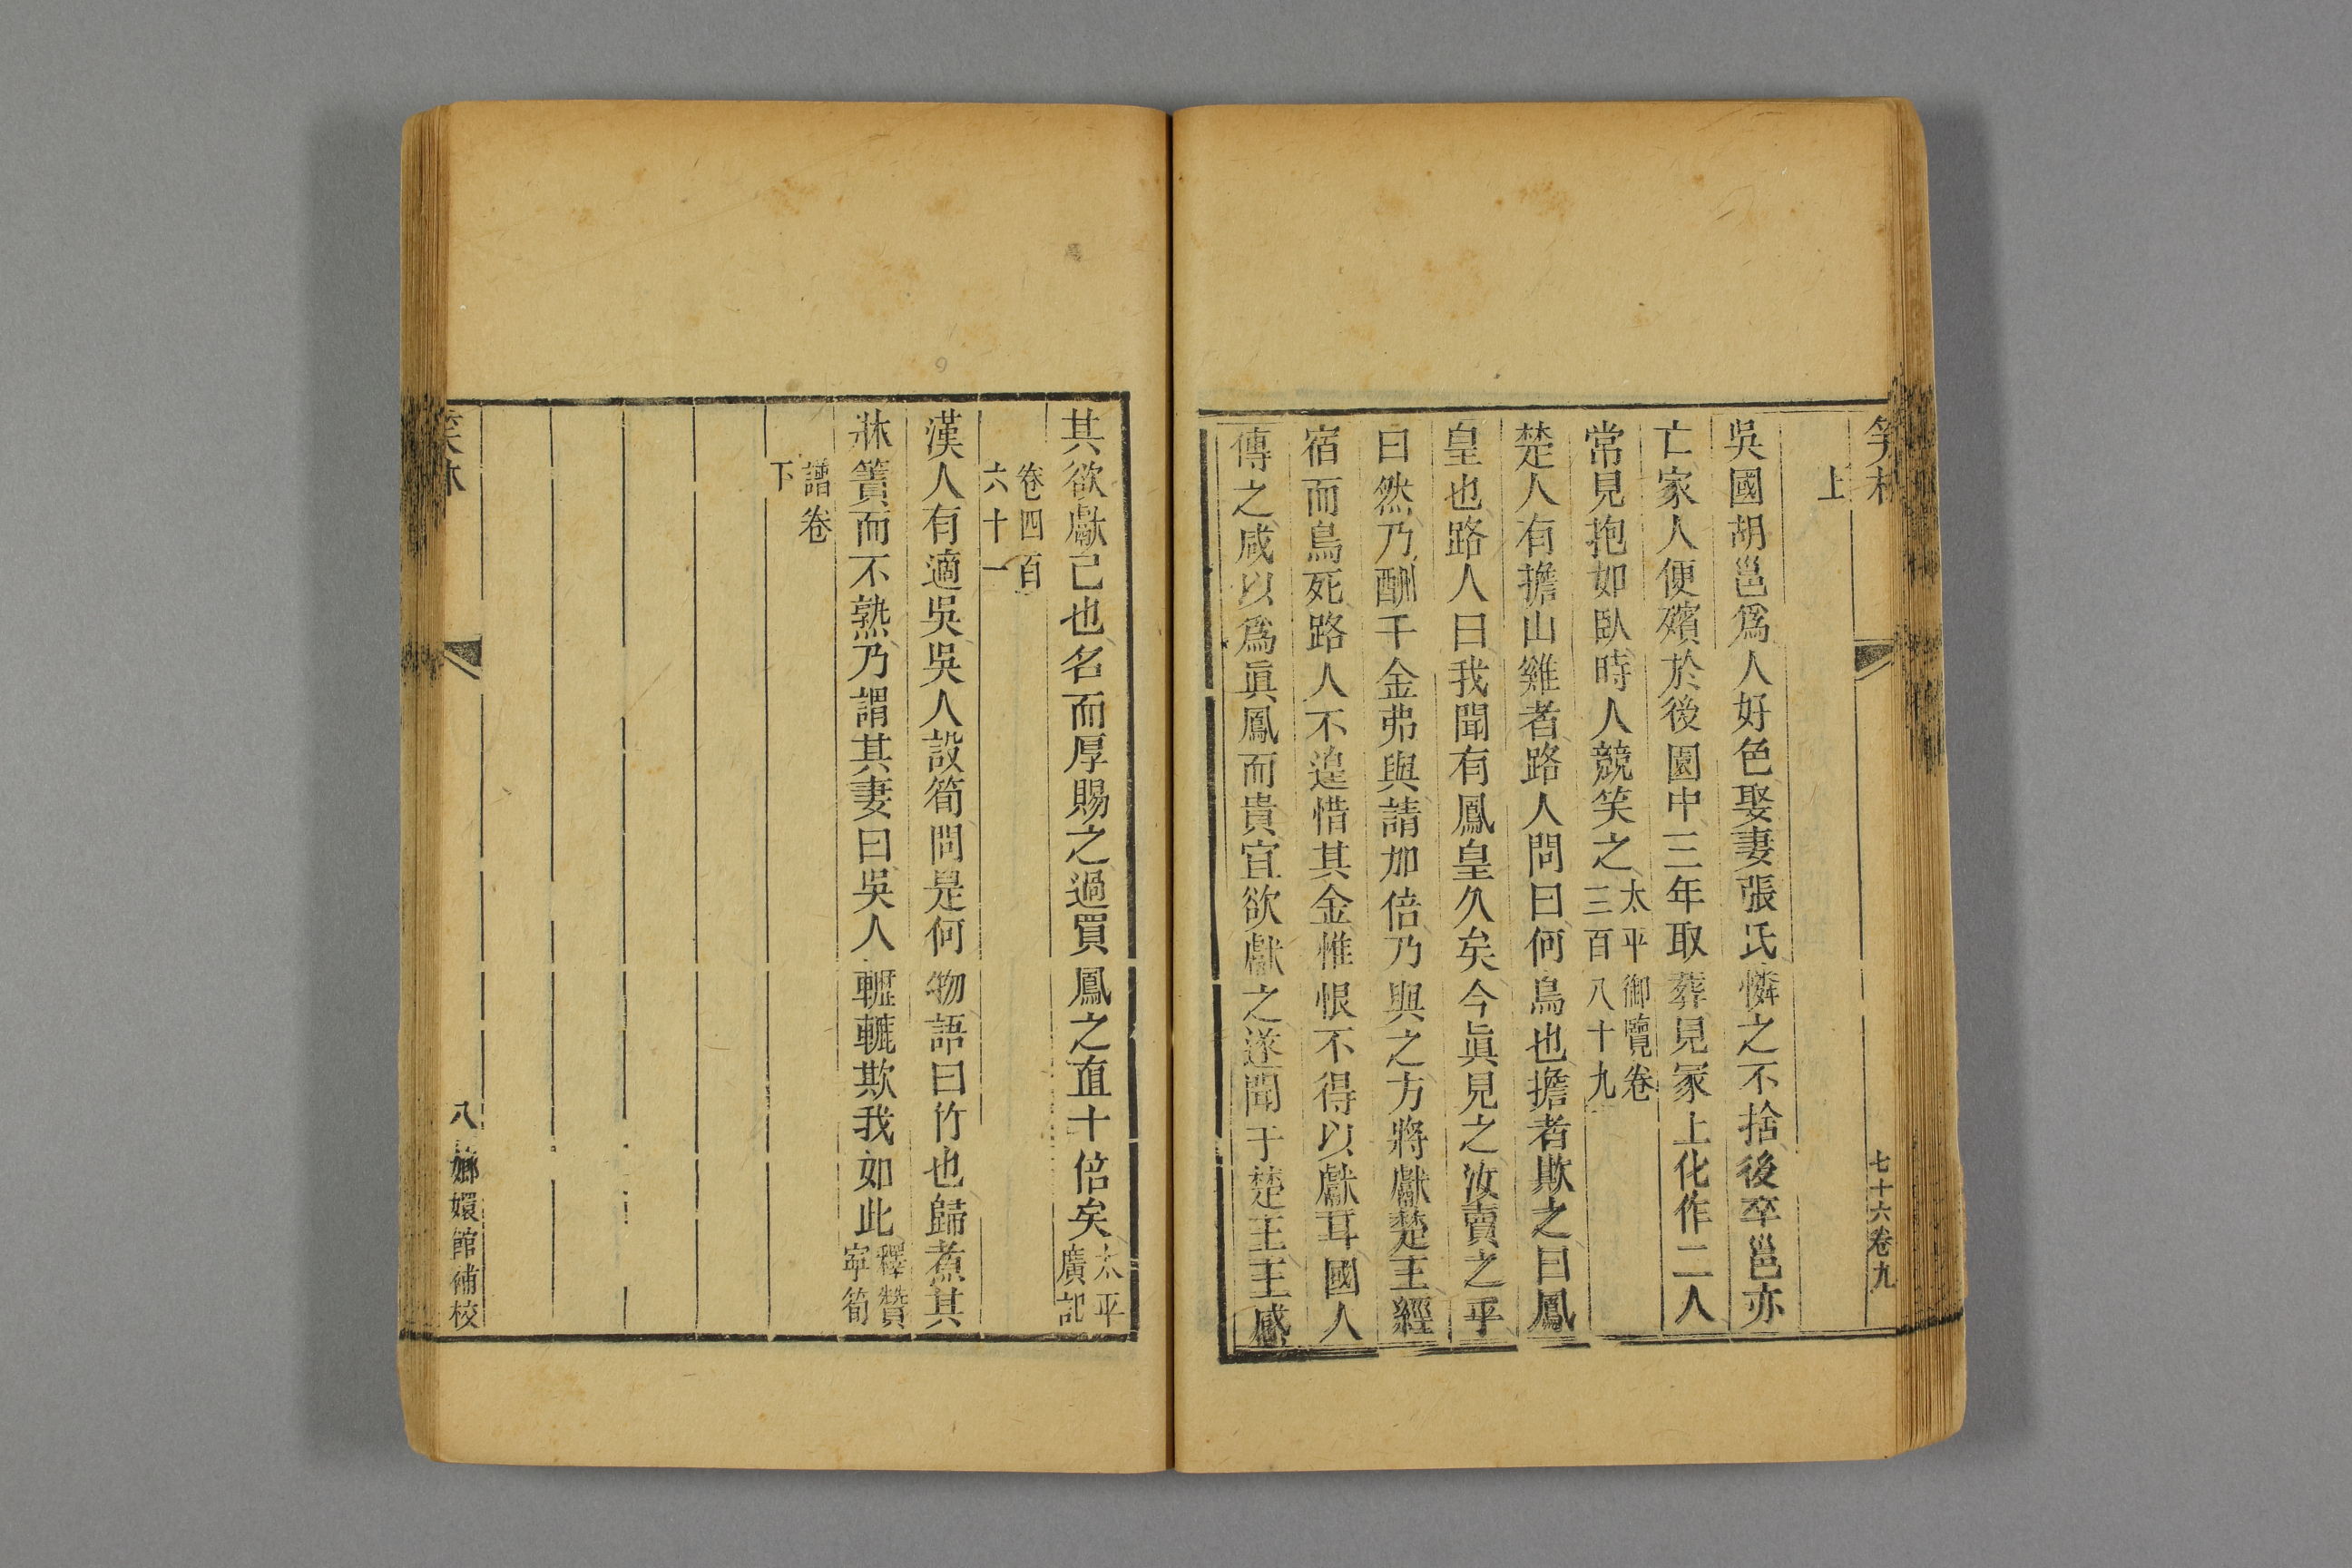 笑林
七十六卷九
上
吳國胡邕爲人好色娶妻張氏憐之不捨後卒邕亦
亡家人便殯於後園中三年取葬見冢上化作二人
常見抱如臥時人競笑之太平御覽卷三百八十九
楚人有擔山雞者路人問曰何鳥也擔者欺之曰鳳
皇也路人曰我聞有鳳皇久矣今眞見之汝賣之乎
曰然乃酬千金弗與請加倍乃與之方將獻楚王經
宿而鳥死路人不遑惜其金惟恨不得以獻耳國人
傳之咸以爲眞鳳而貴宜欲獻之遂聞于楚王王感
其欲獻己也名而厚賜之過買鳳之直十倍矣太平廣記
卷四百六十一
漢人有適吳吳人設筍問是何物語曰竹也歸煮其
牀簀而不熟乃謂其妻曰吳人轣轆欺我如此釋贊寜筍
譜卷下
笑林
八
嫏嬛館補校